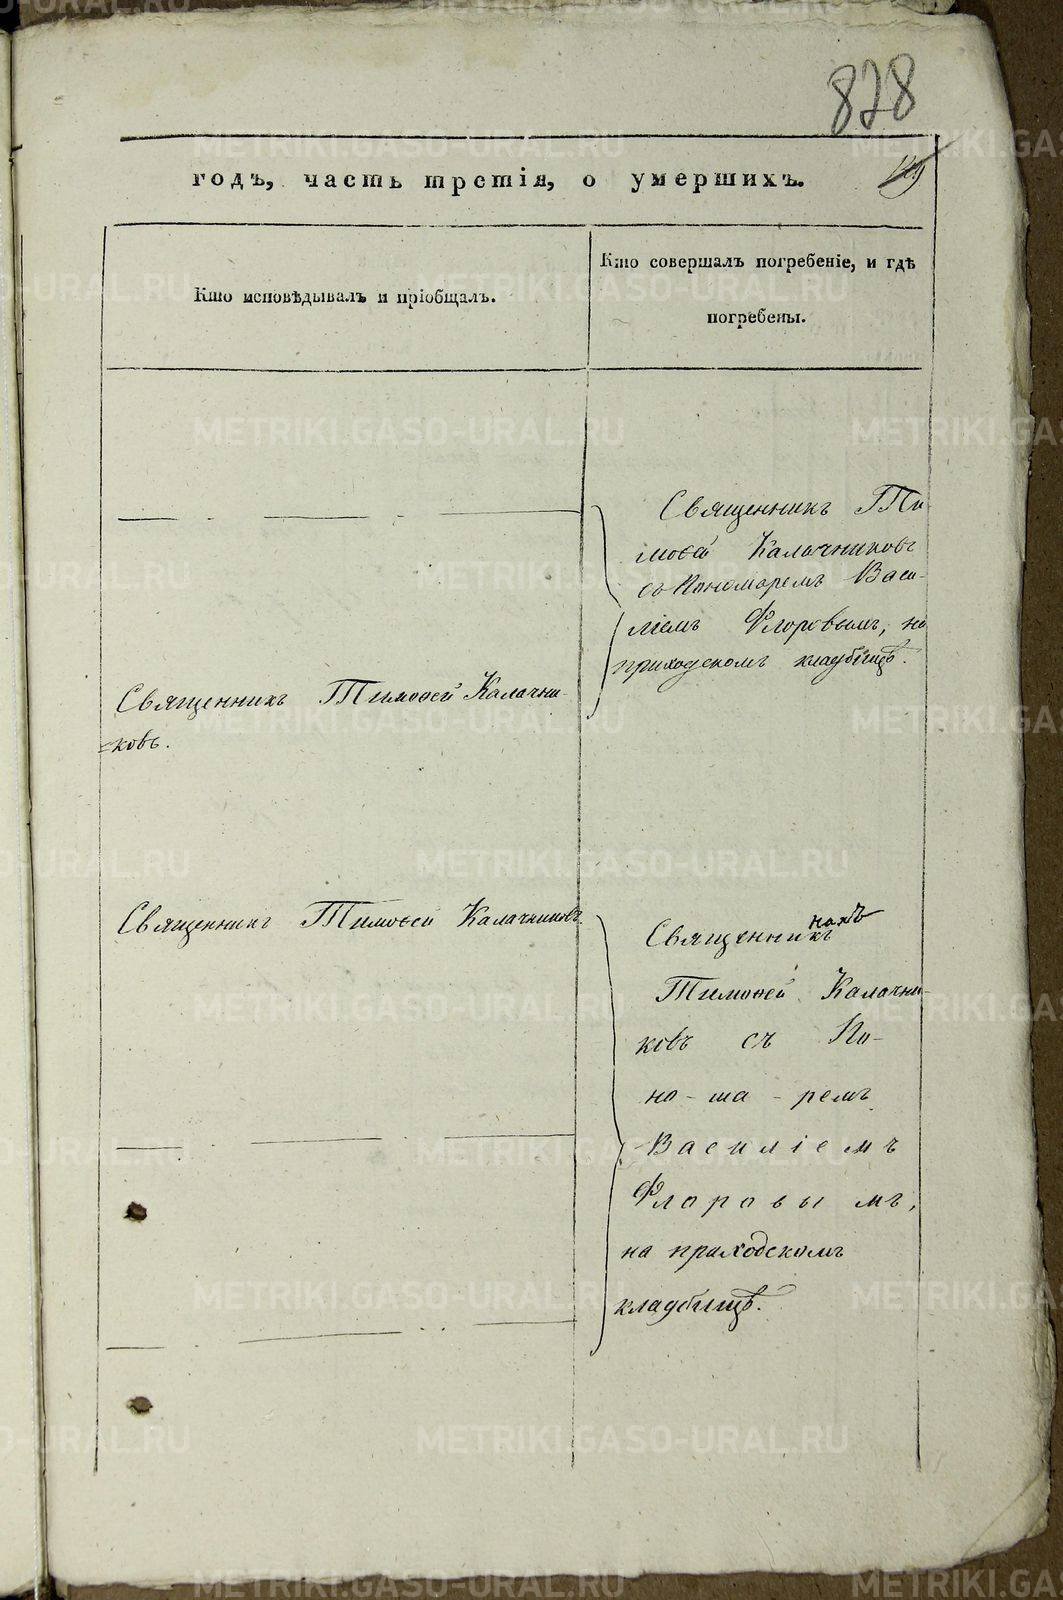 828
годъ, часть третія, о умершихъ.
Кто исповѣдывалъ и пріобщалъ.
Кто совершалъ погребеніе, и гдѣ
погребены.
Священникъ Ти-
моѳей Калачниковъ
съ Пономаремъ Васи-
ліемъ Флоровымъ, на
приходскомъ кладбищѣ.
Священникъ Тимоѳей Калачни-
ковъ.
Священникъ Тимоѳей Калачниковъ
Священникъ
Тимоѳей Калачни-
ковъ съ По-
но-ма-ремъ
Василіемъ
Флоровымъ,
на приходскомъ
кладбищѣ.
METRIKI.GASO-URAL.RU